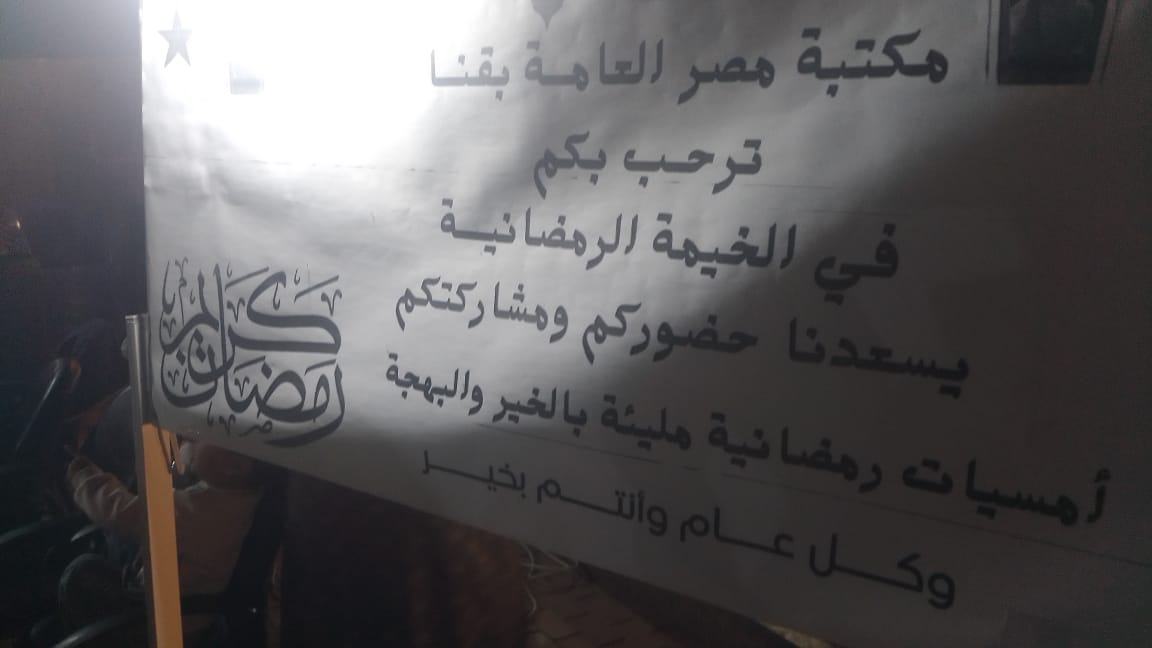 مكتبة مصر العامة بقنا
ترحب بكم
في الخيمة الرمضانية
يسعدنا حضوركم ومشاركتكم
أمسيات رمضانية مليئة بالخير والبهجة
وكل عام وأنتم بخير
رمضان كريم